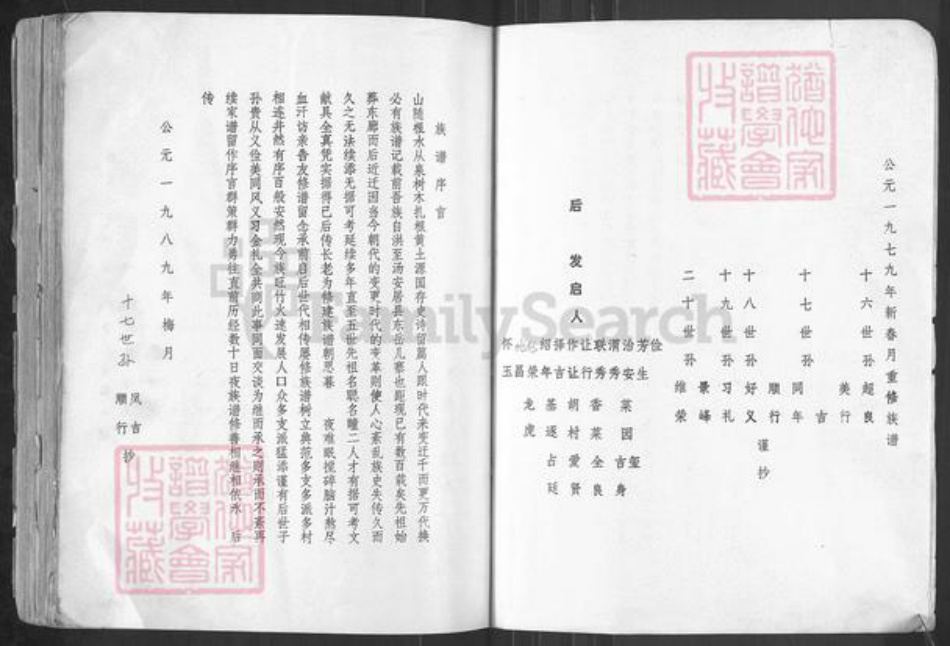 公元一九七九年新春月重修族谱
十六世孙超良
美行
十七世孙同年
吉
顺行
十八世孙好义
十九世孙习礼
景峰
二十世孙维荣
谨抄
后发启人
怀 绍择作让联渭治芳俭
玉昌荣年吉让行秀秀安生
菜园吉玺身
香菜全良
胡村爱贤
基逐占廷
龙虎
族谱序言
山随根水从泉树木扎根黄土源国存史诗留篇人跟时代来变迁千而更万代换
必有族谱记载前吾族自洪至汤安居县东岳儿寨也距现已有数百载矣先祖始
葬东廊而后近迁因当今朝代的变更时代的变革则使人心紊乱族史失传久而
久之无法续添无据可考延续多年直至五世先祖名聪名瞳二人才有据可考文
献具全真凭实据得已后传长老为修建族谱朝思暮 夜难眠搅碎脑汁熬尽
血汗访亲告友修谱留念承前自后世代相传屡修族谱树立典范多支多派多村
相连井然有序百般安然现今族旺竹火速发展人口众多支派猛添谨有后世子
孙贵从义俭美同风义习金礼全共商此事同面交谈为继而承之则承而不紊再
续家谱留作序言群策群力勇往直前历经数十日夜族谱修善相继相依永 后
传
公元一九八九年梅月
十七世孙凤吉
顺行
抄
猶他家譜學會收藏
猶他家譜學會收藏
FamilySearch